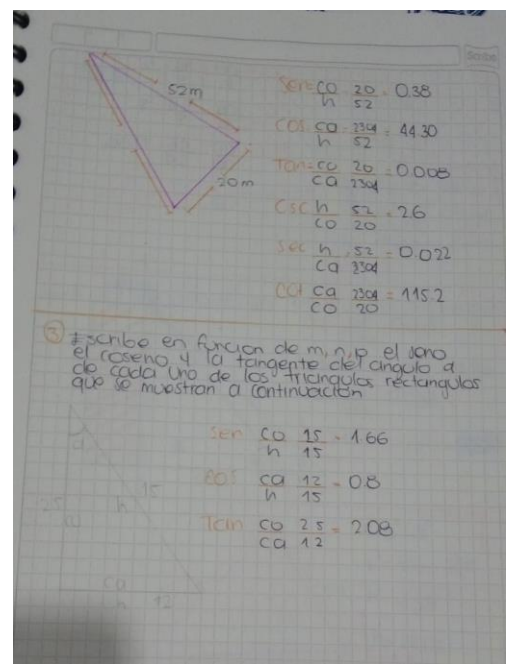 Scribe
52m
20m
Sen = co/h 20/52 = 0.38
cos ca/h = 2304/52 = 44.30
Tan = co/ca 20/2304 = 0.008
Csc h/co 52/20 = 26
sec h/ca = 52/2304 = 0.022
cot ca/co 2304/20 = 115.2
3 Escribe en funcion de m, n, p el seno
el coseno y la tangente del angulo a
de cada uno de los triangulos rectangulos
que se muestran a continuacion
sen co/h 25/15 = 1.66
cos ca/h 12/15 = 0.8
Tan co/ca 25/12 = 208
25
15
h
ca
h 12